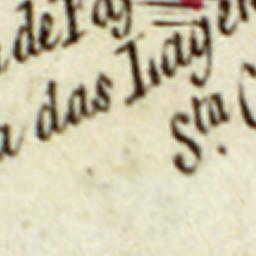 de Fay
das Lagen
Sta. C